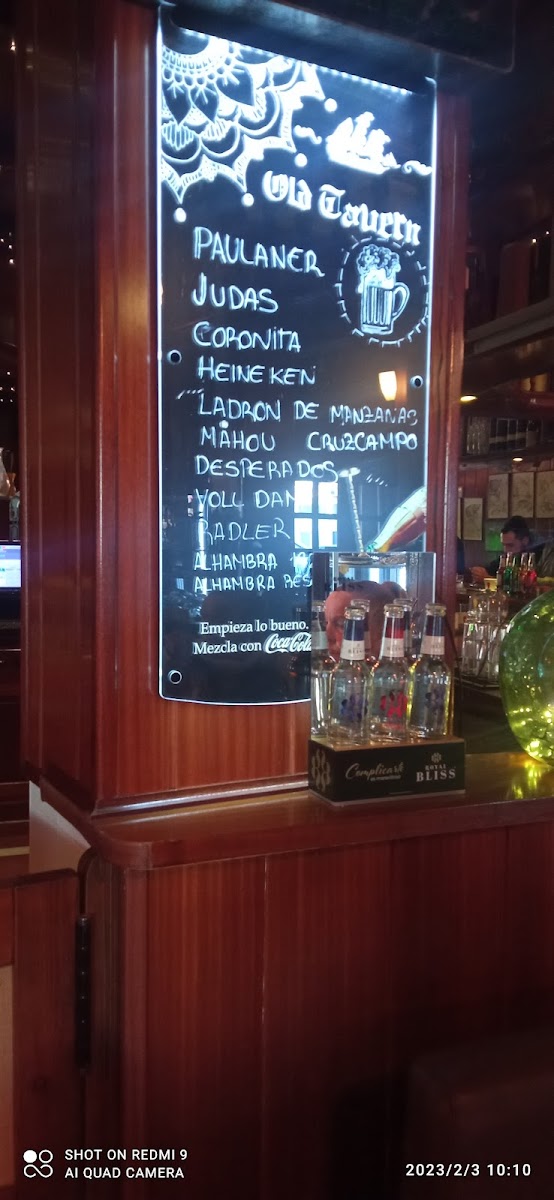 Old Tavern
PAULANER
JUDAS
CORONITA
HEINEKEN
LADRON DE MANZANAS
MAHOU CRUZCAMPO
DESPERADOS
VOLL DAM
RADLER
ALHAMBRA
ALHAMBRA RES
Empieza lo bueno.
Mezcla con Coca-Cola
Complicarte
ROYAL
BLISS
SHOT ON REDMI 9
AI QUAD CAMERA
2023/2/3 10:10